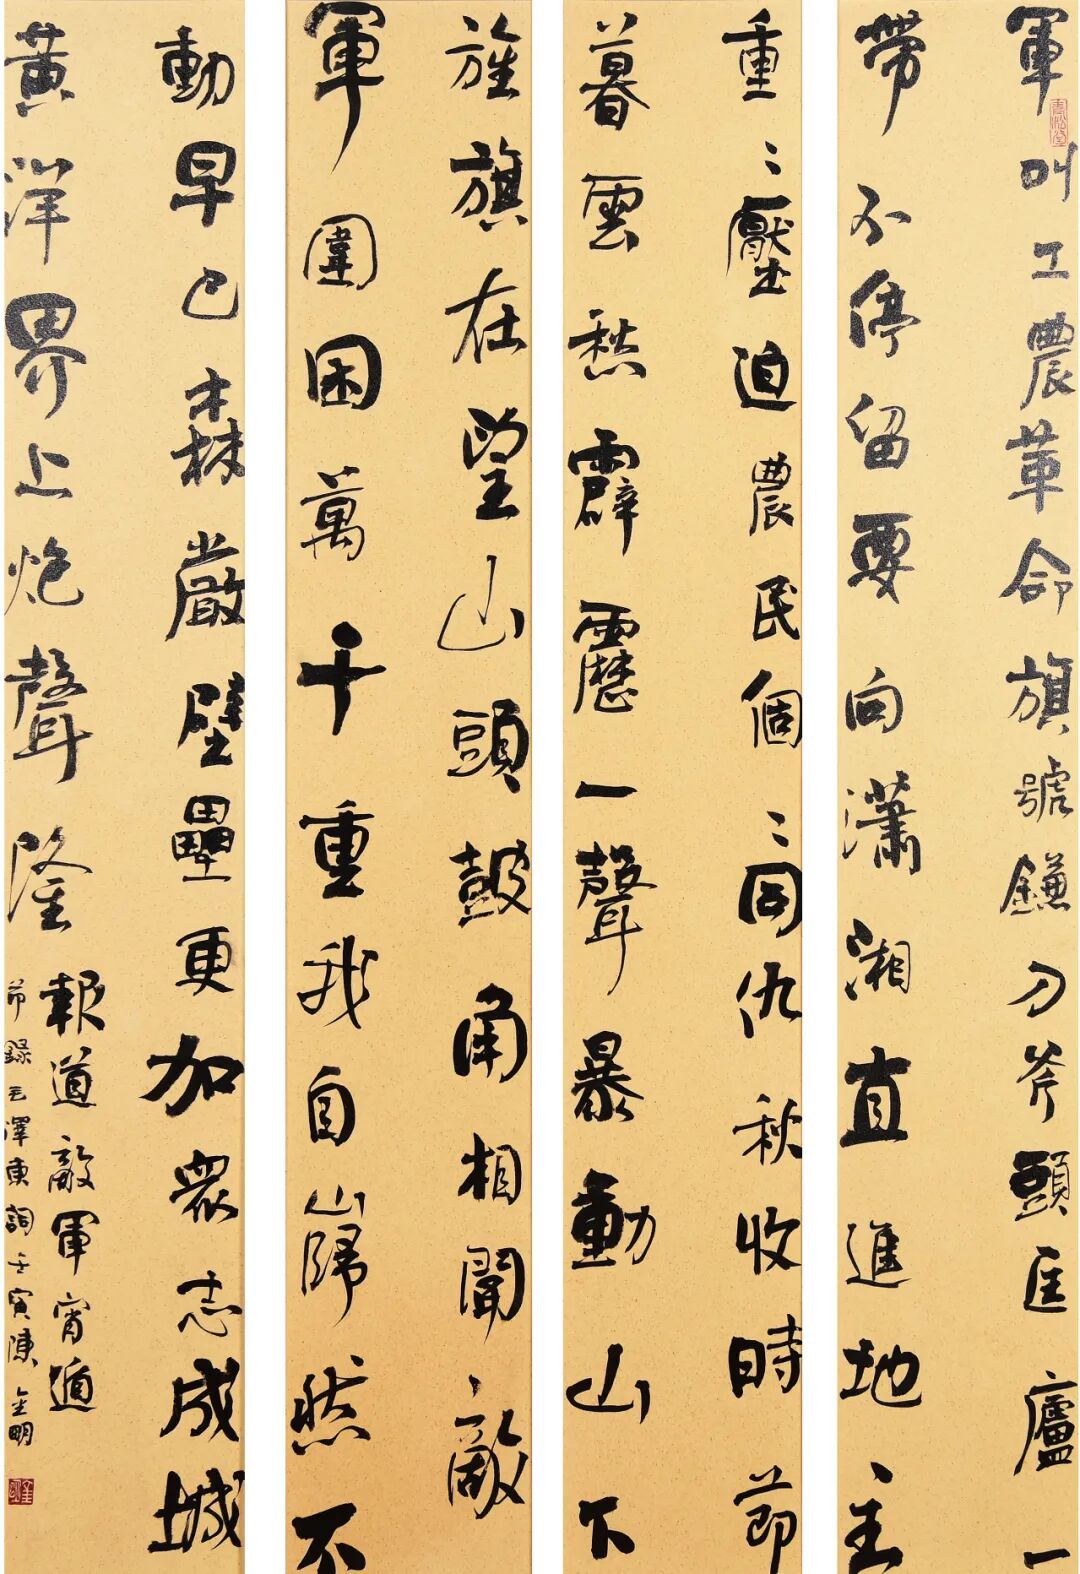 軍叫工農革命旗號鎌刀斧頭匡廬一
帶不停留要向瀟湘直進地主
重〻壓迫農民個〻同仇秋收時節
暮雲愁霹靂一聲暴動山下
旌旗在望山頭鼓角相聞敵
軍圍困萬千重我自巋然不
動早已森嚴壁壘更加衆志成城
黃洋界上炮聲隆
報道敵軍宵遁
節錄毛澤東詞壬寅陳金明